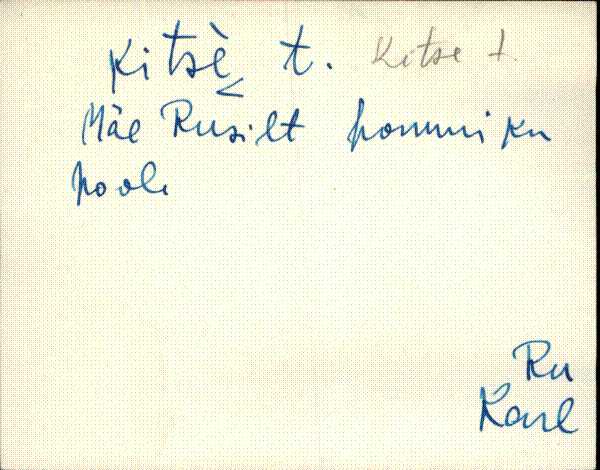 Kitsè t. Kitse t.
Mäe Rusilt hommiku
poole
Ru
Karl